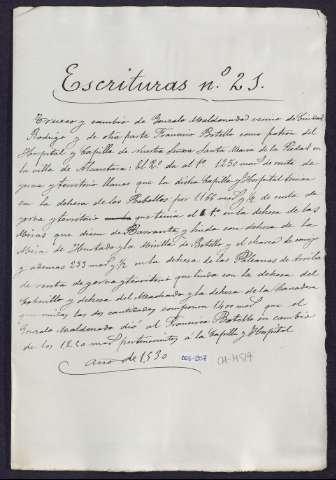 Escrituras nº 21.
Trueco y cambio de Gonzalo Maldonado vecino de Ciudad
Rodrigo y de otra parte Francisco Botello como patron del
Hospital y Capilla de nuestra Señora Santa Maria de la Piedad en
la villa de Alcantara: El 2º da al 1º 1250 mrs de renta de
yerva y territorio llanos que la dicha Capilla y Hospital tienen
en la dehesa de los por 1166 mrs y ½ de renta de
yerva y territorio que tenia el 1º en la dehesa de las
que dicen de y linda con dehesa de la
de Hurtado y la de Botello y el
y ademas 233 mrs y ½ en la dehesa de las de
de renta de yerva y territorio que linda con la dehesa del
y dehesa del y la dehesa de la
que unidas las dos cantidades componen 1400 mrs que el
Gonzalo Maldonado dió al Francisco Botello en cambio
de los 1250 mrs pertenecientes á la Capilla y Hospital
año de 1530